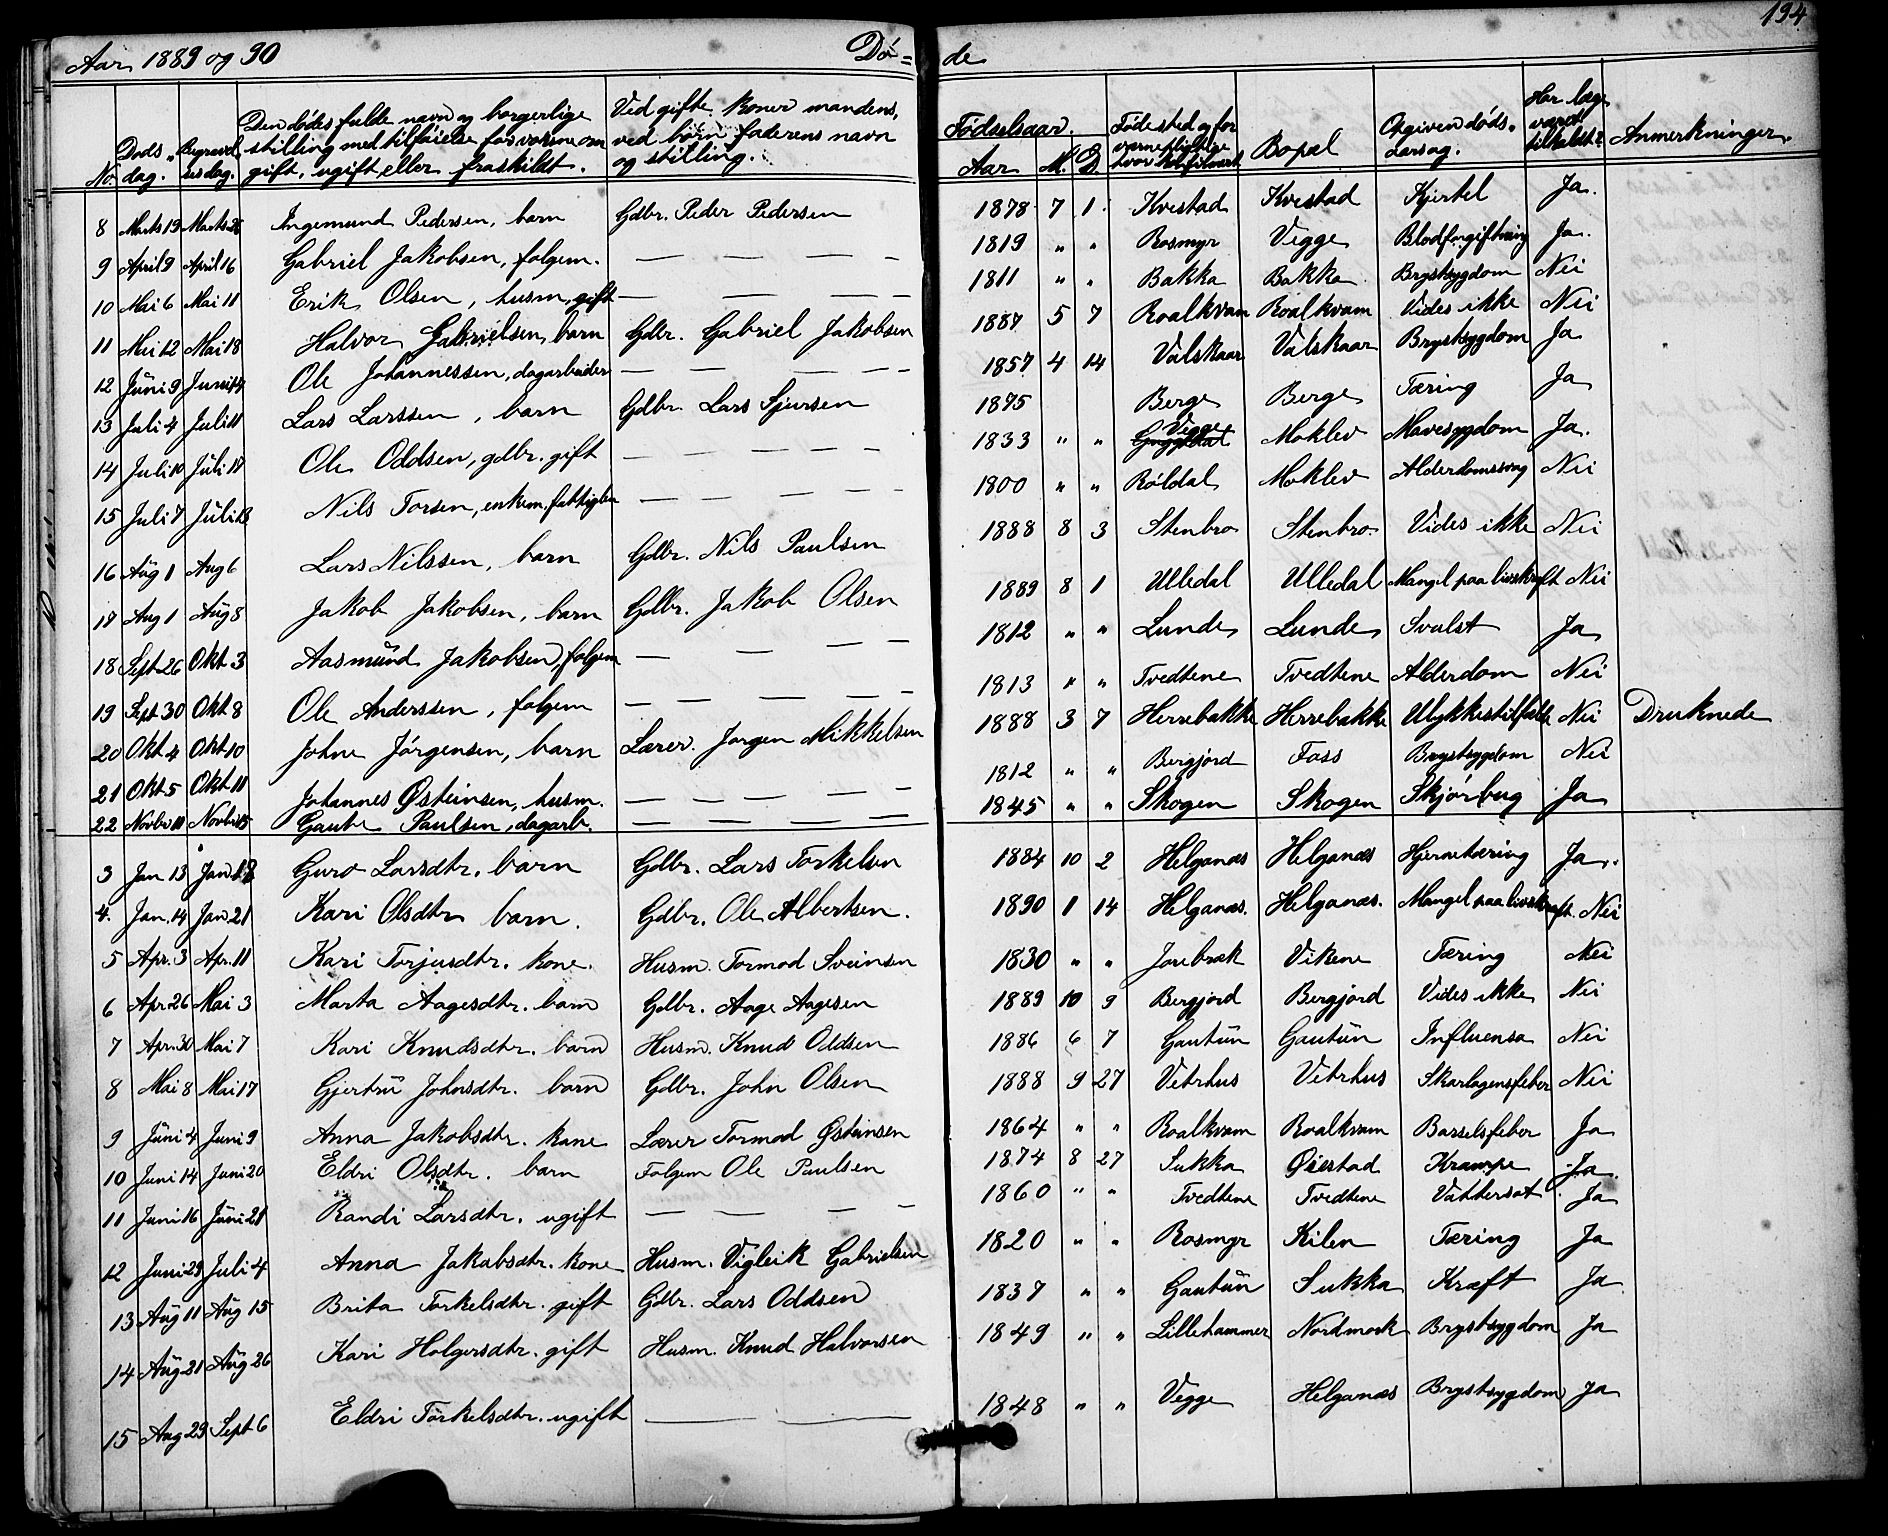 Aar 1889 og 90 Dö=
de 194
No. Døds dag. Begravelsesdag. Den dødes fulde navn og borgerlige stilling med tilføielse for voxne om gift, ugift eller fraskilt. Ved gifte koner mandens, ved børn faderens navn og stilling. Fødselsaar. Aar M. D. Fødested og for Bopæl Opgiven døds aarsag. Har læge været tilkaldt? Anmerkninger.
8 Marts 19 Marts 26 Ingemund Pedersen, barn Gdbr. Peder Pedersen 1878 7 1 Kvestad Kvestad Kjertel Ja.
9 April 9 April 16 Gabriel Jakobsen, folgem. — — — — 1819 " " Rosmyr Vegge Blodforgiftning Ja.
10 Mai 6 Mai 11 Erik Olsen, husm, gift — — — — 1811 " " Bakka Bakka Brystsygdom Nei
11 Mai 12 Mai 18 Halvor Gabrielsen, barn Gdbr. Gabriel Jakobsen 1887 5 7 Roalkvam Roalkvam Vides ikke Nei
12 Juni 9 Juni 14 Ole Johannessen, dagarbeider — — — — 1857 4 14 Valskaar Valskaar Brystsygdom Ja
13 Juli 4 Juli 11 Lars Larssen, barn Gdbr. Lars Sjursen 1875 Berge Berge Tæring Ja
14 Juli 10 Juli 17 Ole Oddsen, gdbr. gift — — — — 1833 " " Vegge Moklev Mavesygdom Ja.
15 Juli 7 Juli 13 Nils Torsen, enkem. fattiglem — — — — 1800 " " Röldal Moklev Alderdomssvag Nei
16 Aug 1 Aug 6 Lars Nilssen, barn Gdbr. Nils Paulsen 1888 8 3 Stenbro Stenbro Vides ikke Nei
17 Aug 1 Aug 8 Jakob Jakobsen, barn Gdbr. Jakob Olsen 1889 8 1 Ulledal Ulledal Mangel paa livskraft Nei
18 Sept 26 Okt 3 Aasmund Jakobsen, folgem — — — 1812 " " Lunde Lunde Svulst Ja
19 Sept 30 Okt 8 Ole Anderssen, folgem — — — — 1813 " " Tvedtene Tvedtene Alderdom Nei
20 Okt 4 Okt 10 Johne Jörgensen, barn Lærer. Jorgen Mikkelsen 1888 3 7 Herrebakke Herrebakke Ulykkestilfælde Nei Druknede
21 Okt 5 Okt 11 Johannes Østeinsen, husm. — — — — 1812 " " Bergjord Foss Brystsygdom Nei
22 Novbr 10 Novbr 15 Gaute Paulsen, dagarb. — — — — 1845 " " Skogen Skogen Skjörbug Ja
3 Jan 13 Jan 17 Guro Larsdtr. barn Gdbr. Lars Torkelsen 1884 10 2 Helganæs Helganæs Hjernetæring Ja.
4. Jan. 14 Jan 21 Kari Olsdtr barn. Gdbr. Ole Albertsen. 1890 1 14 Helganæs. Helganæs. Mangel paa livskraft Nei
5 Apr. 3 Apr. 11 Kari Torjusdtr. kone. Husm. Tormod Sveinsen 1830 " " Jorebrek Vikene Tæring Nei
6 Apr. 26 Mai 3 Marta Aagesdtr. barn Gdbr. Aage Aagesen 1889 10 9 Bergjord Bergjord Vides ikke Nei
7 Apr. 30 Mai 7 Kari Knudsdtr. barn Husm. Knud Oddsen 1886 6 7 Gautun Gautun Influensa Nei
8 Mai 8 Mai 17 Gjertru Johnsdtr. barn Gdbr. John Olsen 1888 9 27 Vetrhus Vetrhus Skarlagensfeber Nei
9 Juni 4 Juni 9 Anna Jakobsdtr. kone Lærer Tormod Østeinsen 1864 " " Roalkvam Roalkvam Barselsfeber Ja
10 Juni 14 Juni 20 Eldri Olsdtr. barn Folgem Ole Paulsen 1874 8 27 Sukka Øiestad Krampe Ja
11 Juni 16 Juni 21 Randi Larsdtr. ugift — — — — 1860 " " Tvedtene Tvedtene Vattersot Ja
12 Juni 29 Juli 4 Anna Jakobsdtr. kone Husm. Vigleik Gabrielsen 1820 " " Rosmyr Kilen Tæring Ja
13 Aug 11 Aug 15 Brita Torkelsdtr. gift Gdbr. Lars Oddsen 1837 " " Gautun Sukka Kræft Ja
14 Aug 21 Aug 26 Kari Holgersdtr. gift Husm. Knud Halvorsen 1849 " " Lillehammer Nordmork Brystsygdom Ja
15 Aug 29 Sept 6 Eldri Torkelsdtr. ugift — — 1848 " " Vegge Helganæs Brystsygdom Ja